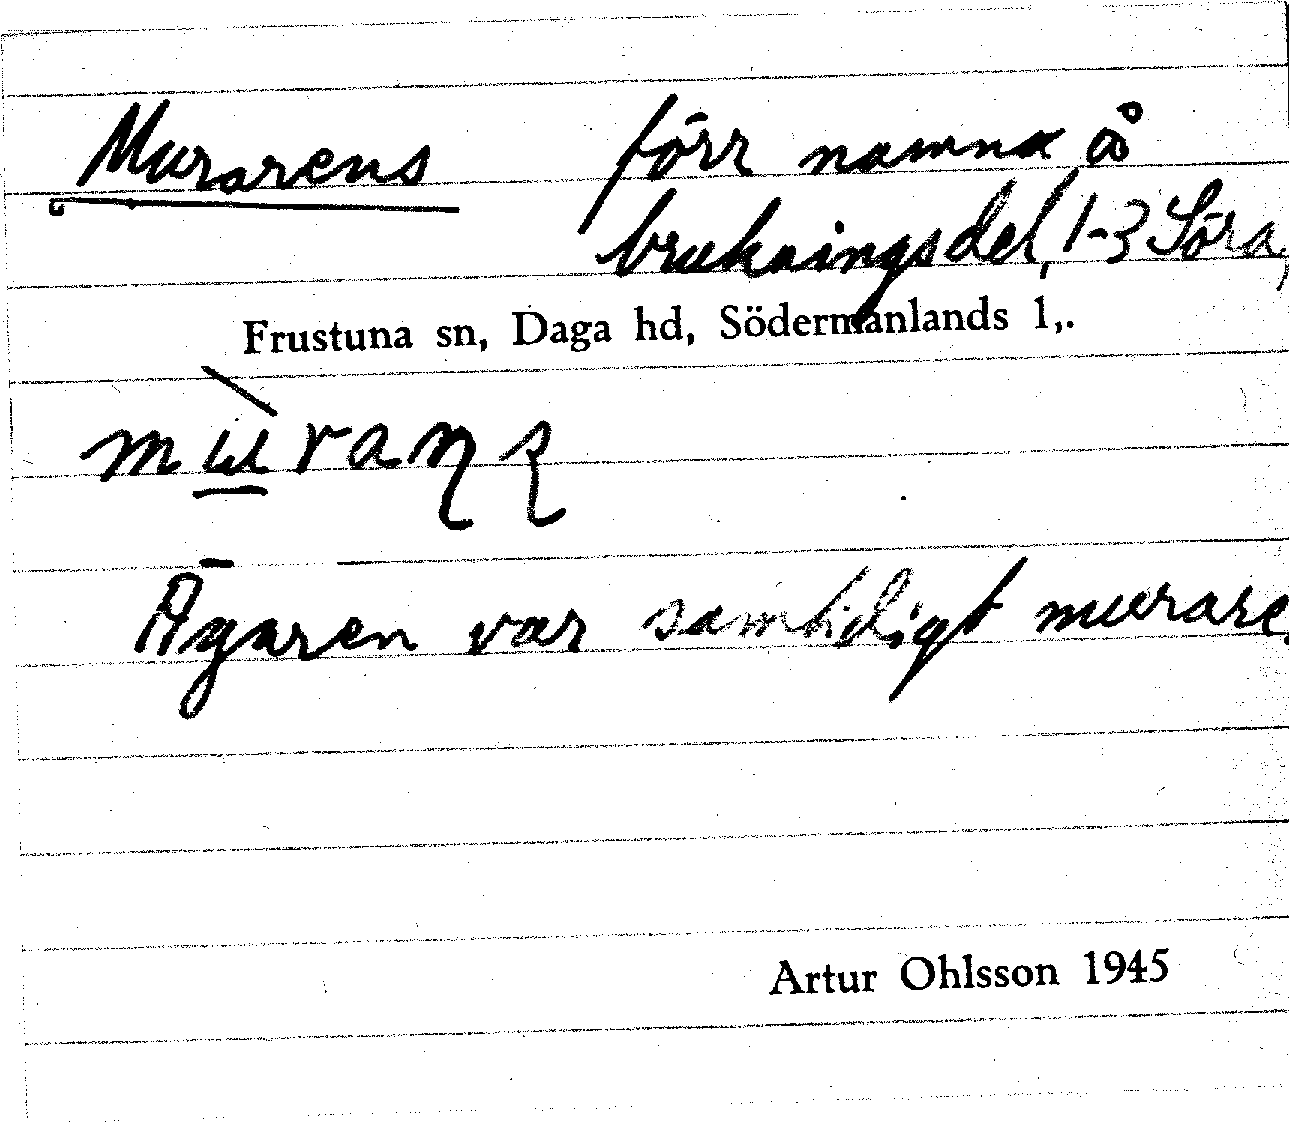 Murarens förr namna å
brukningsdel, 1-3 Söra,
Frustuna sn, Daga hd, Södermanlands l,.
Ägaren var samtidigt murare.
Artur Ohlsson 1945